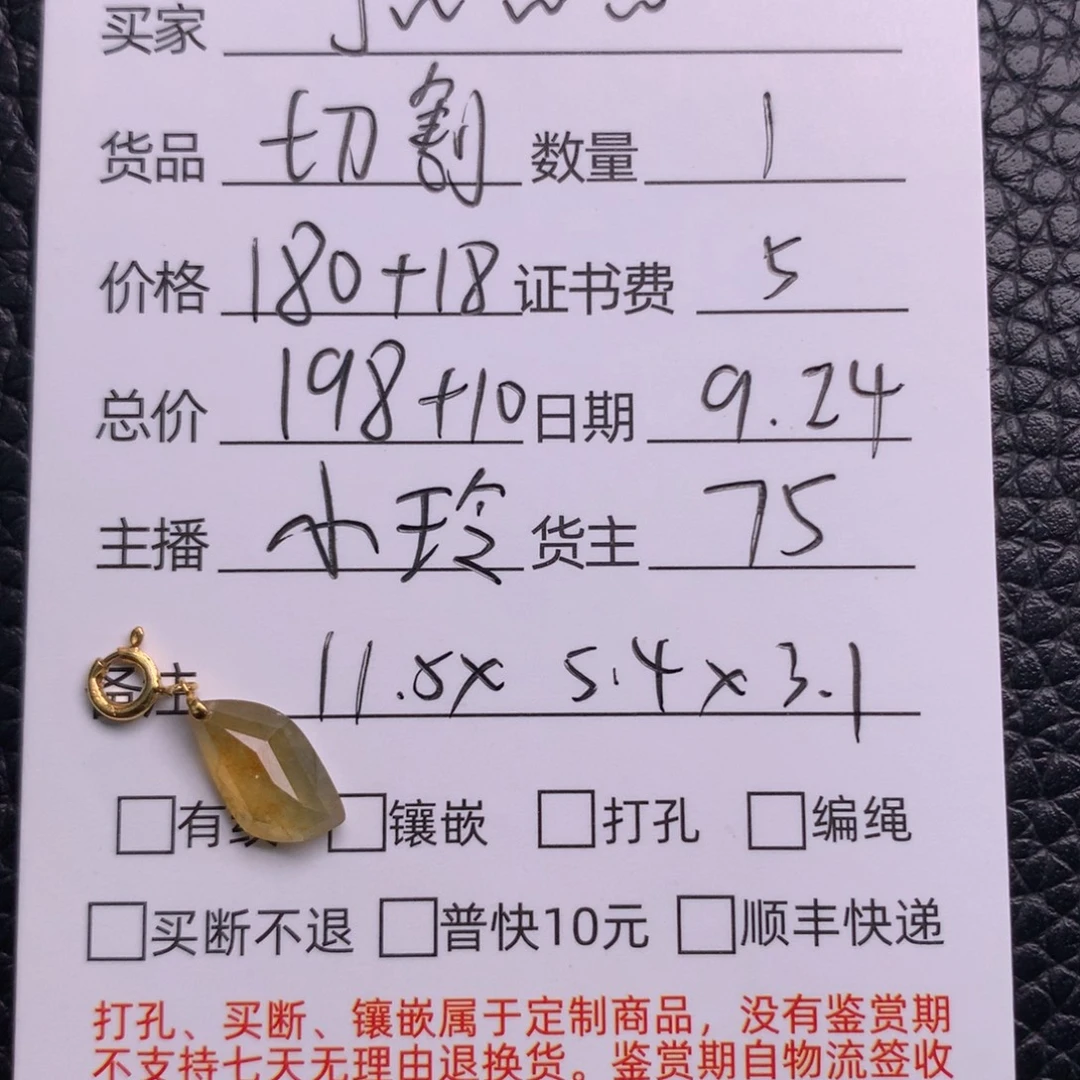 买家
货品 切割 数量 1
价格 180+18 证书费 5
总价 198+10 日期 9.24
主播 小玲 货主 75
备注 11.8x 5.4x3.1
□有纹 □镶嵌 □打孔 □编绳
□买断不退 □普快10元 □顺丰快递
打孔、买断、镶嵌属于定制商品，没有鉴赏期
不支持七天无理由退换货。鉴赏期自物流签收